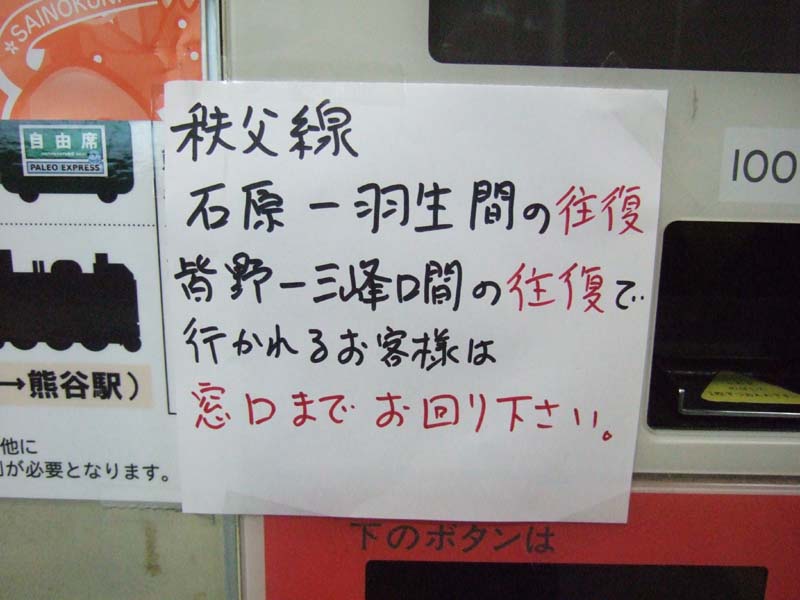 SAINOKUNI
自由席
PALEO EXPRESS
→熊谷駅）
他に
が必要となります。
秩父線
石原ー羽生間の往復
皆野ー三峰口間の往復で
行かれるお客様は
窓口までお回り下さい。
100
下のボタンは